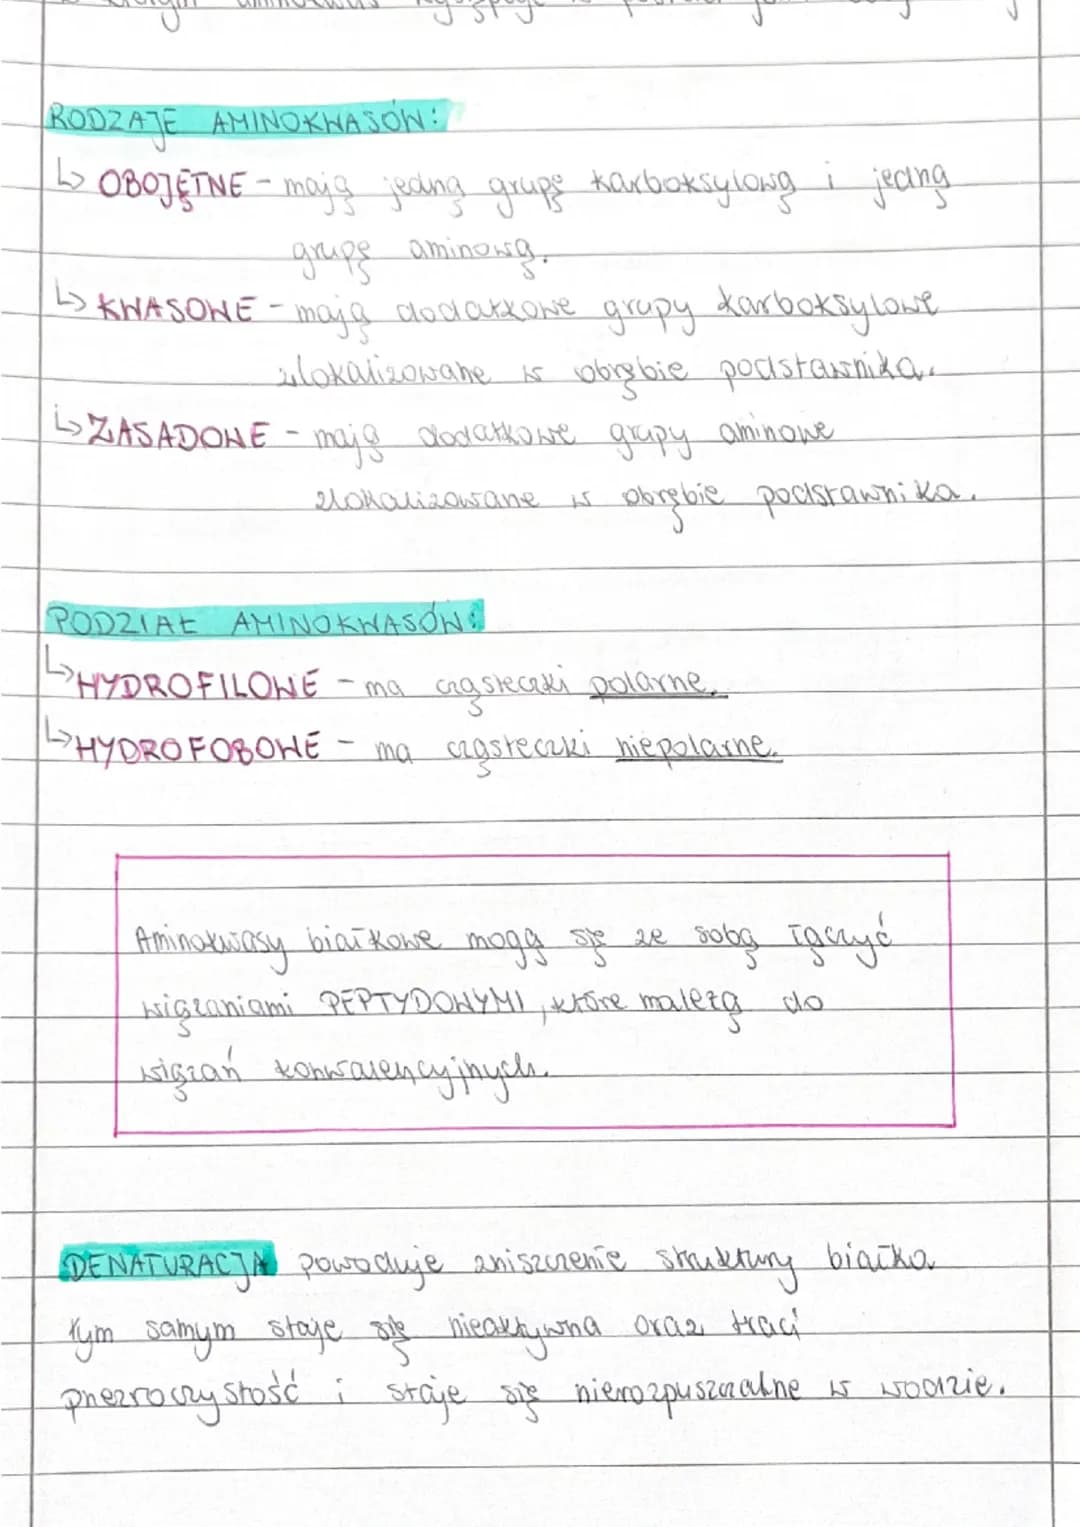 RODZAJE AMINOKWASÓW:
↳ OBOJĘTNE - mają jedną grupę karboksylową i jedną
grupę aminową.
↳ KWASOWE - mają dodatkowe grupy karboksylowe
zlokalizowane w obrębie podstawnika.
↳ ZASADOWE - mają dodatkowe grupy aminowe
zlokalizowane w obrębie podstawnika.
PODZIAŁ AMINOKWASÓW:
↳ HYDROFILOWE - ma cząsteczki polarne.
↳ HYDROFOBOWE - ma cząsteczki niepolarne.
Aminokwasy białkowe mogą się ze sobą łączyć
wiązaniami PEPTYDOWYMI, które należą do
wiązań konwalencyjnych.
DENATURACJA powoduje zniszczenie struktury białka
tym samym staje się nieaktywna oraz traci
przezroczystość i staje się nierozpuszczalne w wodzie.